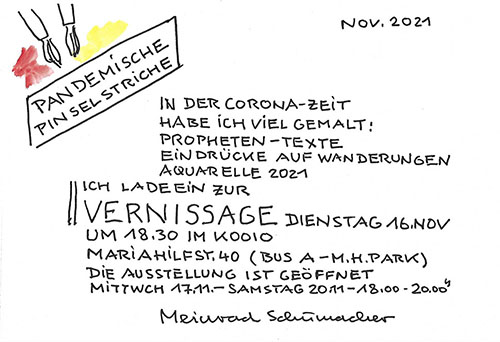 NOV. 2021
PANDEMISCHE
PINSELSTRICHE
IN DER CORONA-ZEIT
HABE ICH VIEL GEMALT:
PROPHETEN-TEXTE
EINDRÜCKE AUF WANDERUNGEN
AQUARELLE 2021
ICH LADE EIN ZUR
VERNISSAGE DIENSTAG 16.NOV
UM 18.30 IM KOOIO
MARIAHILFST. 40 (BUS A-M.H.PARK)
DIE AUSSTELLUNG IST GEÖFFNET
MITTWCH 17.11.- SAMSTAG 20.11 - 18.00 - 20.00 h
Meinrad Schumacher